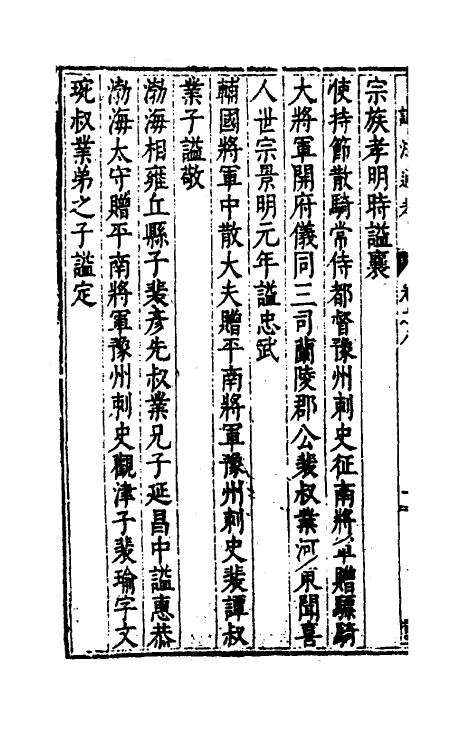 宗族孝明時謚襄
使持節散騎常侍都督豫州刺史征南將軍贈驃騎
大將軍開府儀同三司蘭陵郡公裴叔業河東聞喜
人世宗景明元年謚忠武
輔國將軍中散大夫贈平南將軍豫州刺史裴譚叔
業子謚敬
渤海相雍丘縣子裴彥先叔業兄子延昌中謚惠恭
渤海太守贈平南將軍豫州刺史觀津子裴瑜字文
琬叔業弟之子謚定